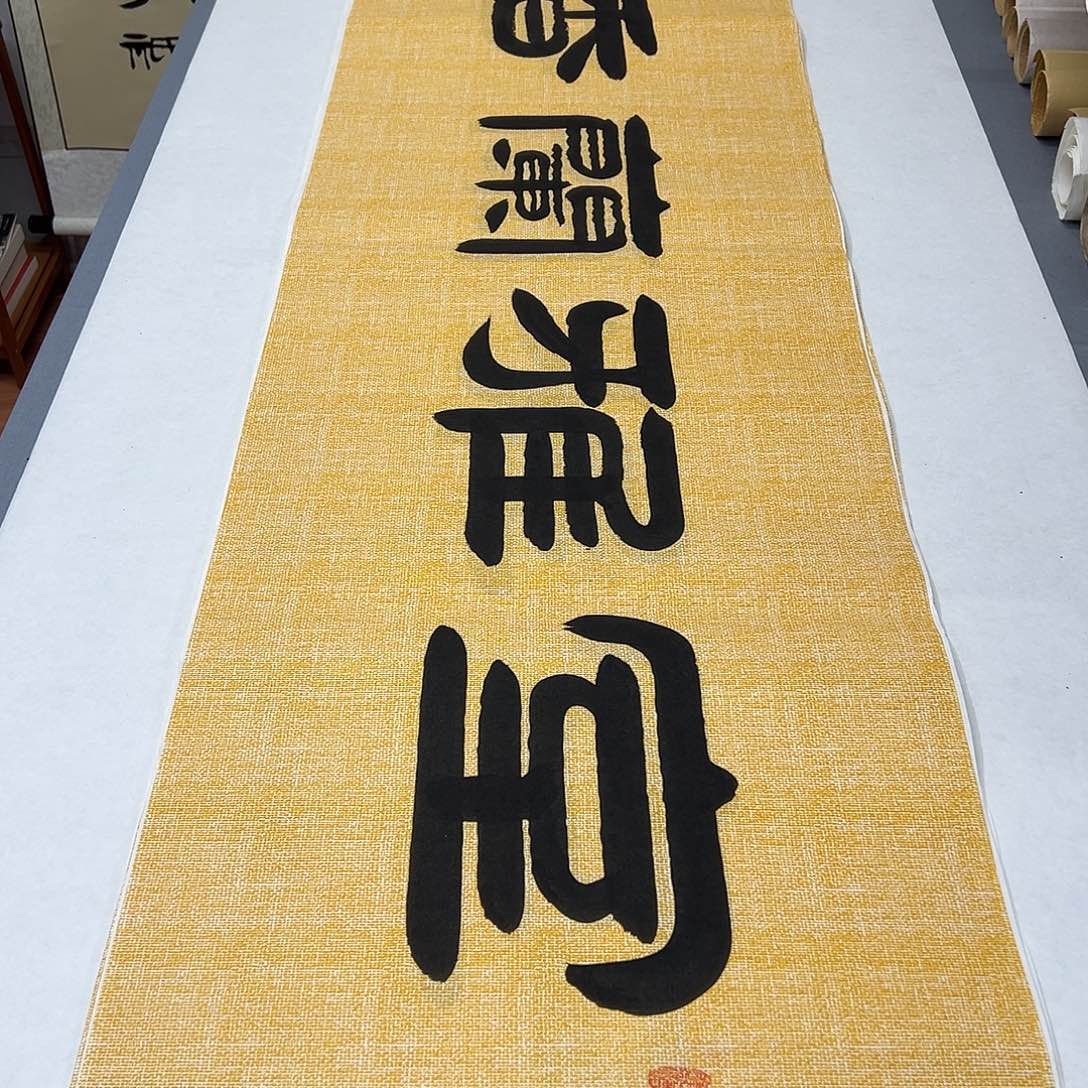 香蘭雅室